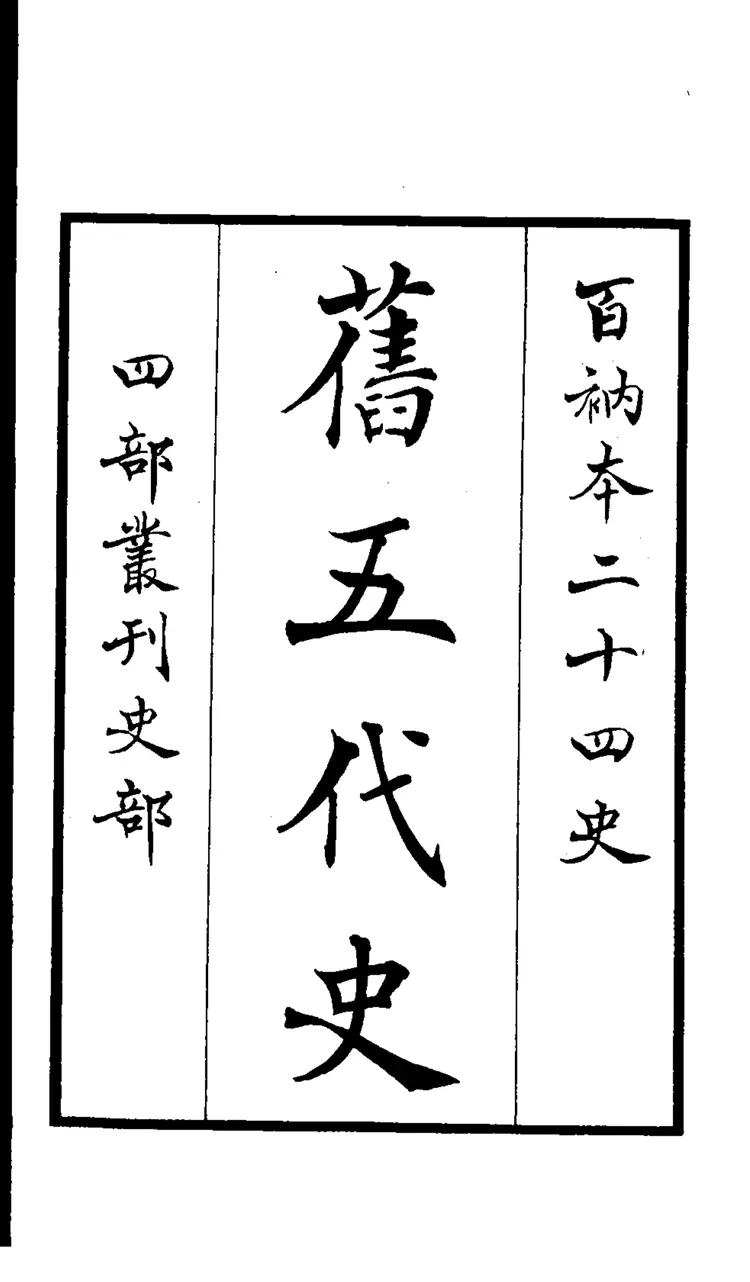 百衲本二十四史
舊五代史
四部叢刊史部